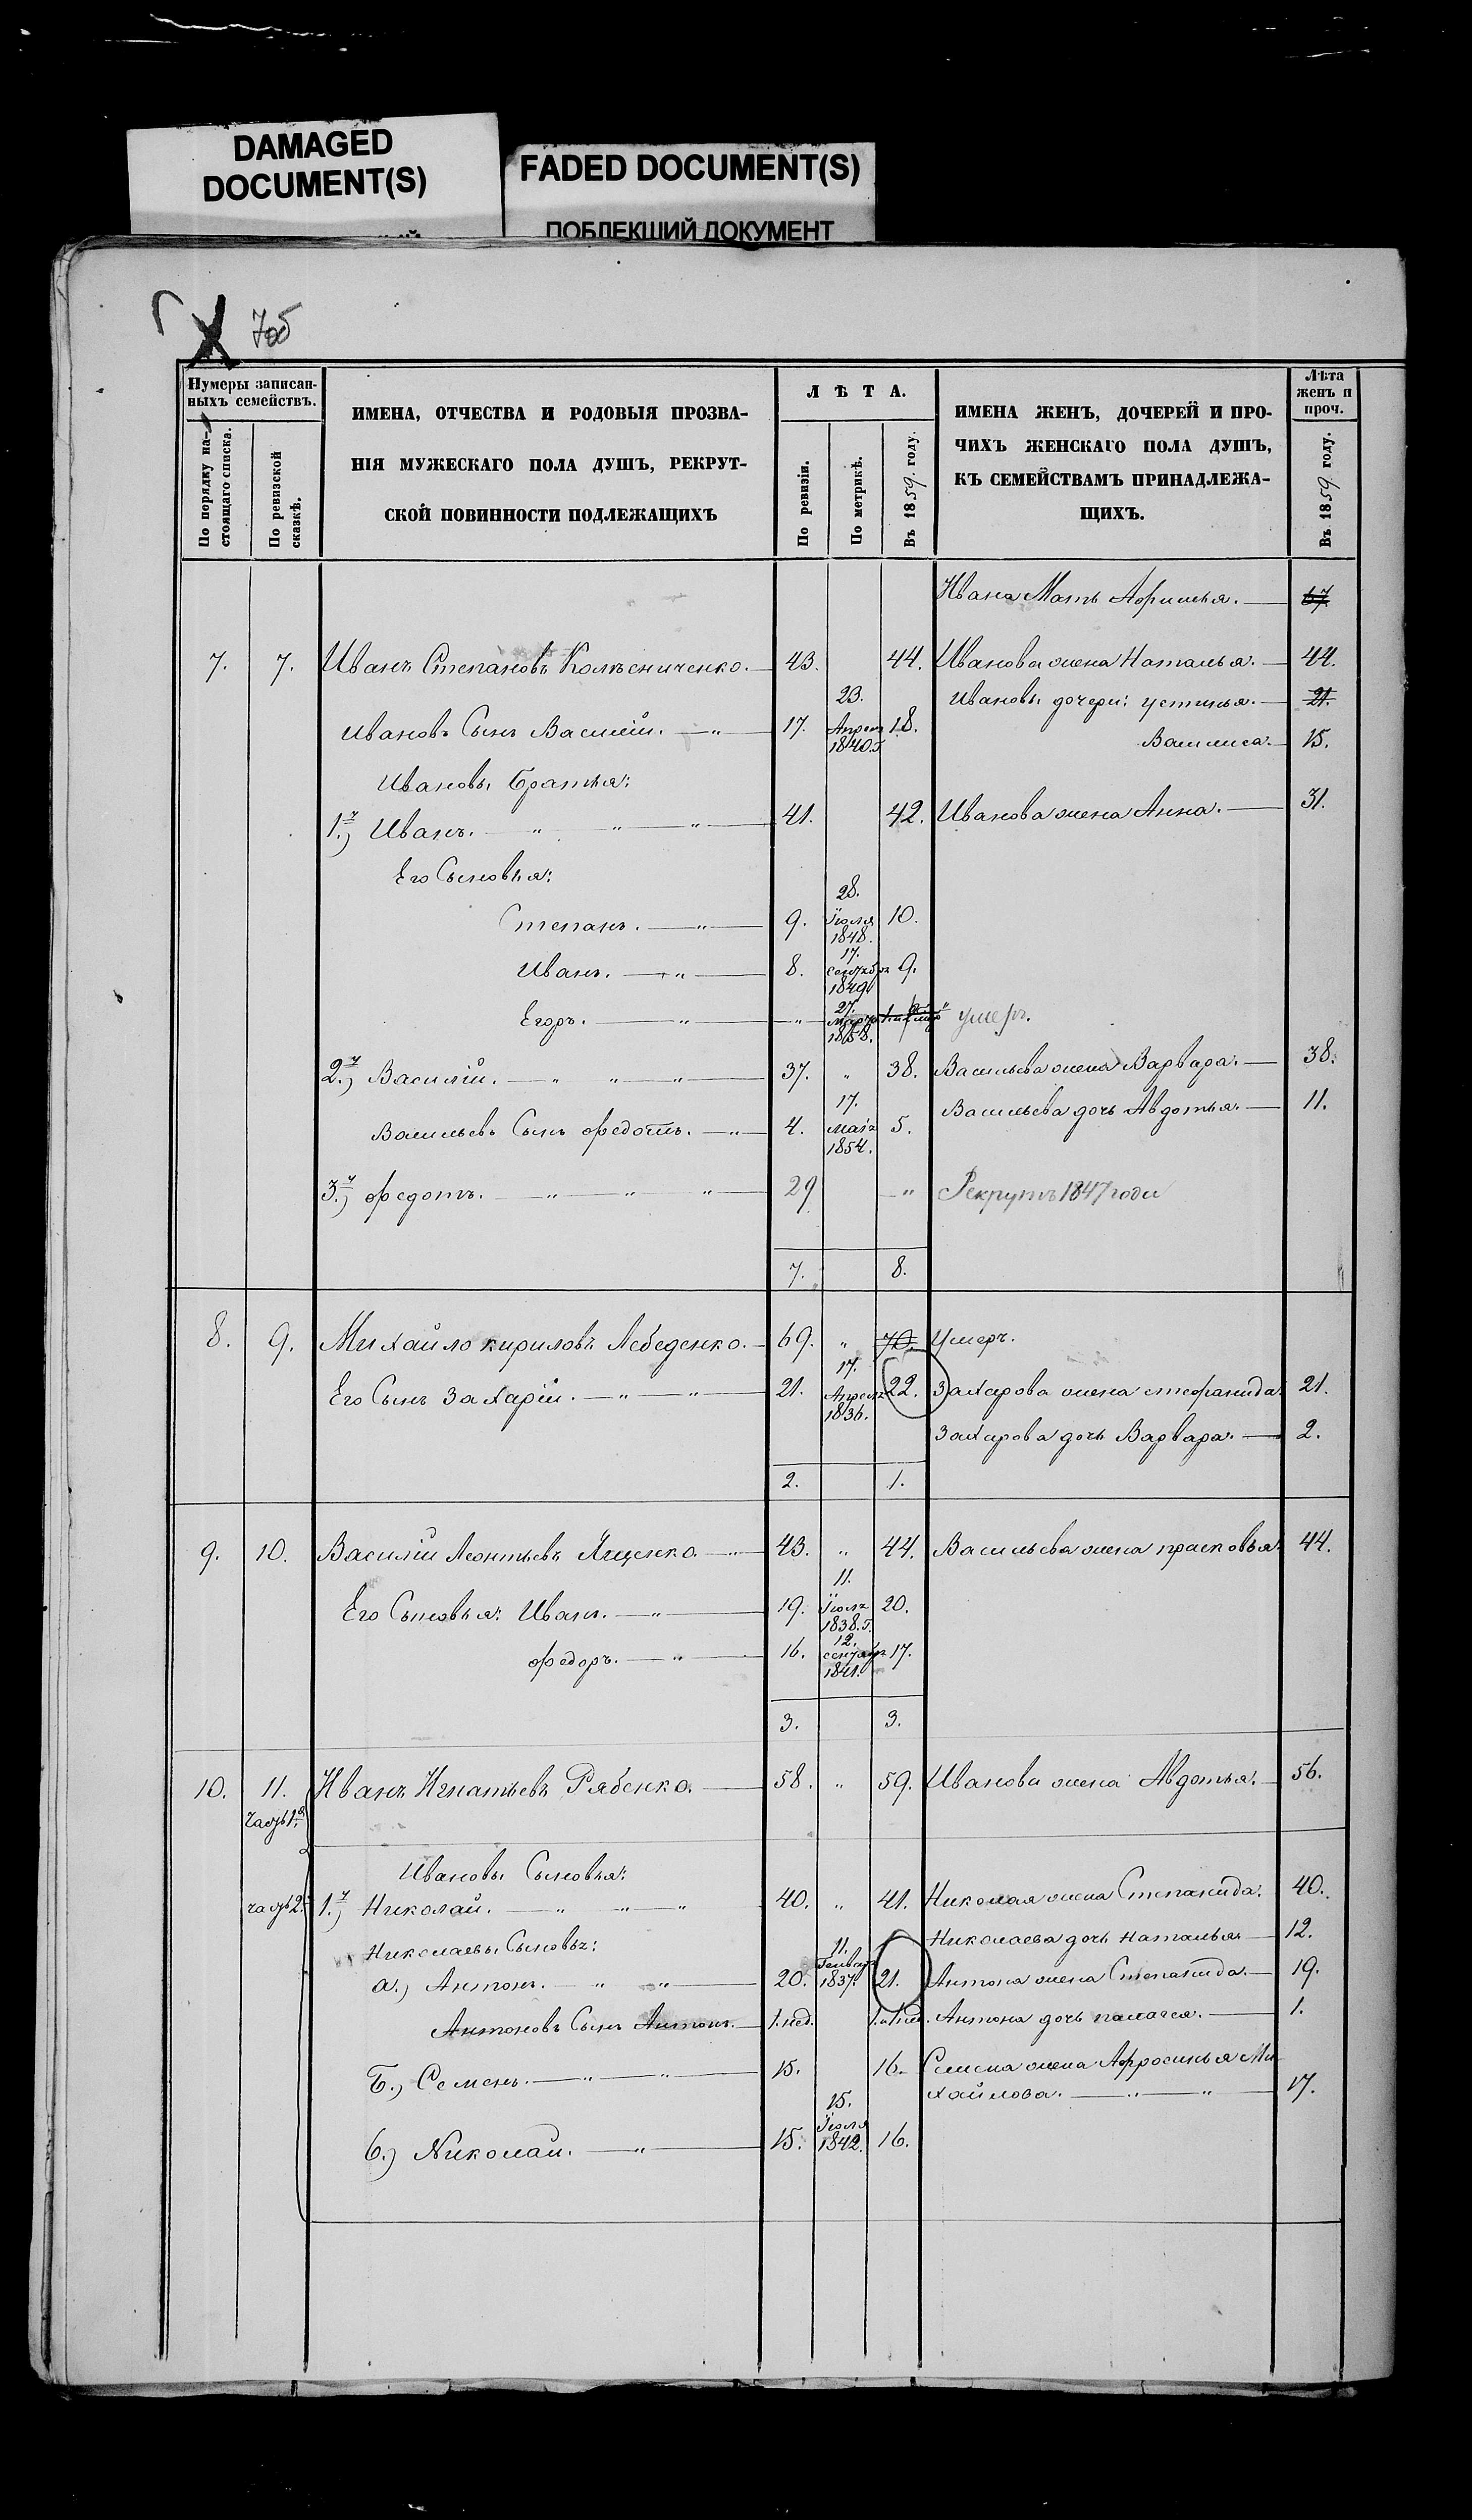 DAMAGED
DOCUMENT(S)
FADED DOCUMENT(S)
ПОБЛЕКШИЙ ДОКУМЕНТ
7об
Нумеры записан-
ныхъ семействъ.
По порядку на-
стоящаго списка.
По ревизской
сказкѣ.
ИМЕНА, ОТЧЕСТВА И РОДОВЫЯ ПРОЗВА-
НІЯ МУЖЕСКАГО ПОЛА ДУШЪ, РЕКРУТ-
СКОЙ ПОВИННОСТИ ПОДЛЕЖАЩИХЪ
ЛѢТА.
По ревизіи.
По метрикѣ.
Въ 1859. году.
ИМЕНА ЖЕНЪ, ДОЧЕРЕЙ И ПРО-
ЧИХЪ ЖЕНСКАГО ПОЛА ДУШЪ,
КЪ СЕМЕЙСТВАМЪ ПРИНАДЛЕЖА-
ЩИХЪ.
Лѣта
женъ и
проч.
Въ 1859. году.
Ивана Мать 67.
7. 7. Иванъ Степановъ Колѣсниченко. 43. 44. Иванова жена Наталья. 44.
Ивановъ Сынъ Василій. 17. 23. Апреля 1840.г 18. Ивановы дочери: устинья. 21.
Василиса. 15.
Ивановы братья:
1.й) Иванъ. 41. 42. Иванова жена Анна. 31.
Его Сыновья:
Степанъ. 9. 28. Іюля 1848. 10.
Иванъ. 8. 17. сентября 1849. 9.
Егоръ. 27. Марта 1858. умеръ.
2.й) Василій. 37. 38. Васильева жена Варвара. 38.
Васильевъ Сынъ Федотъ. 4. 17. Маія 1854. 5. Васильева дочь Авдотья. 11.
3.й) Федотъ. 29 Рекрутъ 1847 года
7. 8.
8. 9. Михайло кириловъ Лебеденко. 69. 70. Умеръ.
Его Сынъ Захарій. 21. 17. Апреля 1836. 22. Захарова жена стефанида. 21.
Захарова дочь Варвара. 2.
2. 1.
9. 10. Василій Леонтьевъ Ященко. 43. 44. Васильева жена прасковья. 44.
Его Сыновья: Иванъ. 19. 11. Іюля 1838.г. 20.
Федоръ. 16. 12. сентября 1841. 17.
3. 3.
10. 11. Иванъ Игнатьевъ Рябенко. 58. 59. Иванова жена Авдотья. 56.
Часть 1.я
Ивановы Сыновья:
часть 2. 1.й) Николай. 40. 41. Николая жена Степанида. 40.
Николаевы Сыновья: Николаева дочь наталья 12.
а.) Антонъ. 20. 11. Генваря 1837. 21. Антона жена Степанида. 19.
Антоновъ Сынъ Антонъ. 1.нед. Антона дочь 1.
Б.) Семенъ. 15. 16. Семена жена Афросинья Ми-
хайлова. 17.
в.) Николай. 15. 15. Іюля 1842. 16.